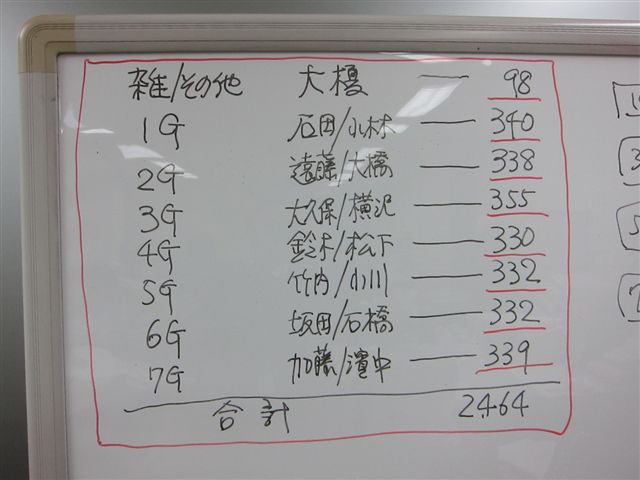 雑/その他 大榎 — 98
1G 石田/小林 — 340
2G 遠藤/大橋 — 338
3G 大久保/横沢 — 355
4G 鈴木/松下 — 330
5G 竹内/小川 — 332
6G 坂田/石橋 — 332
7G 加藤/濱中 — 339
合計 2464